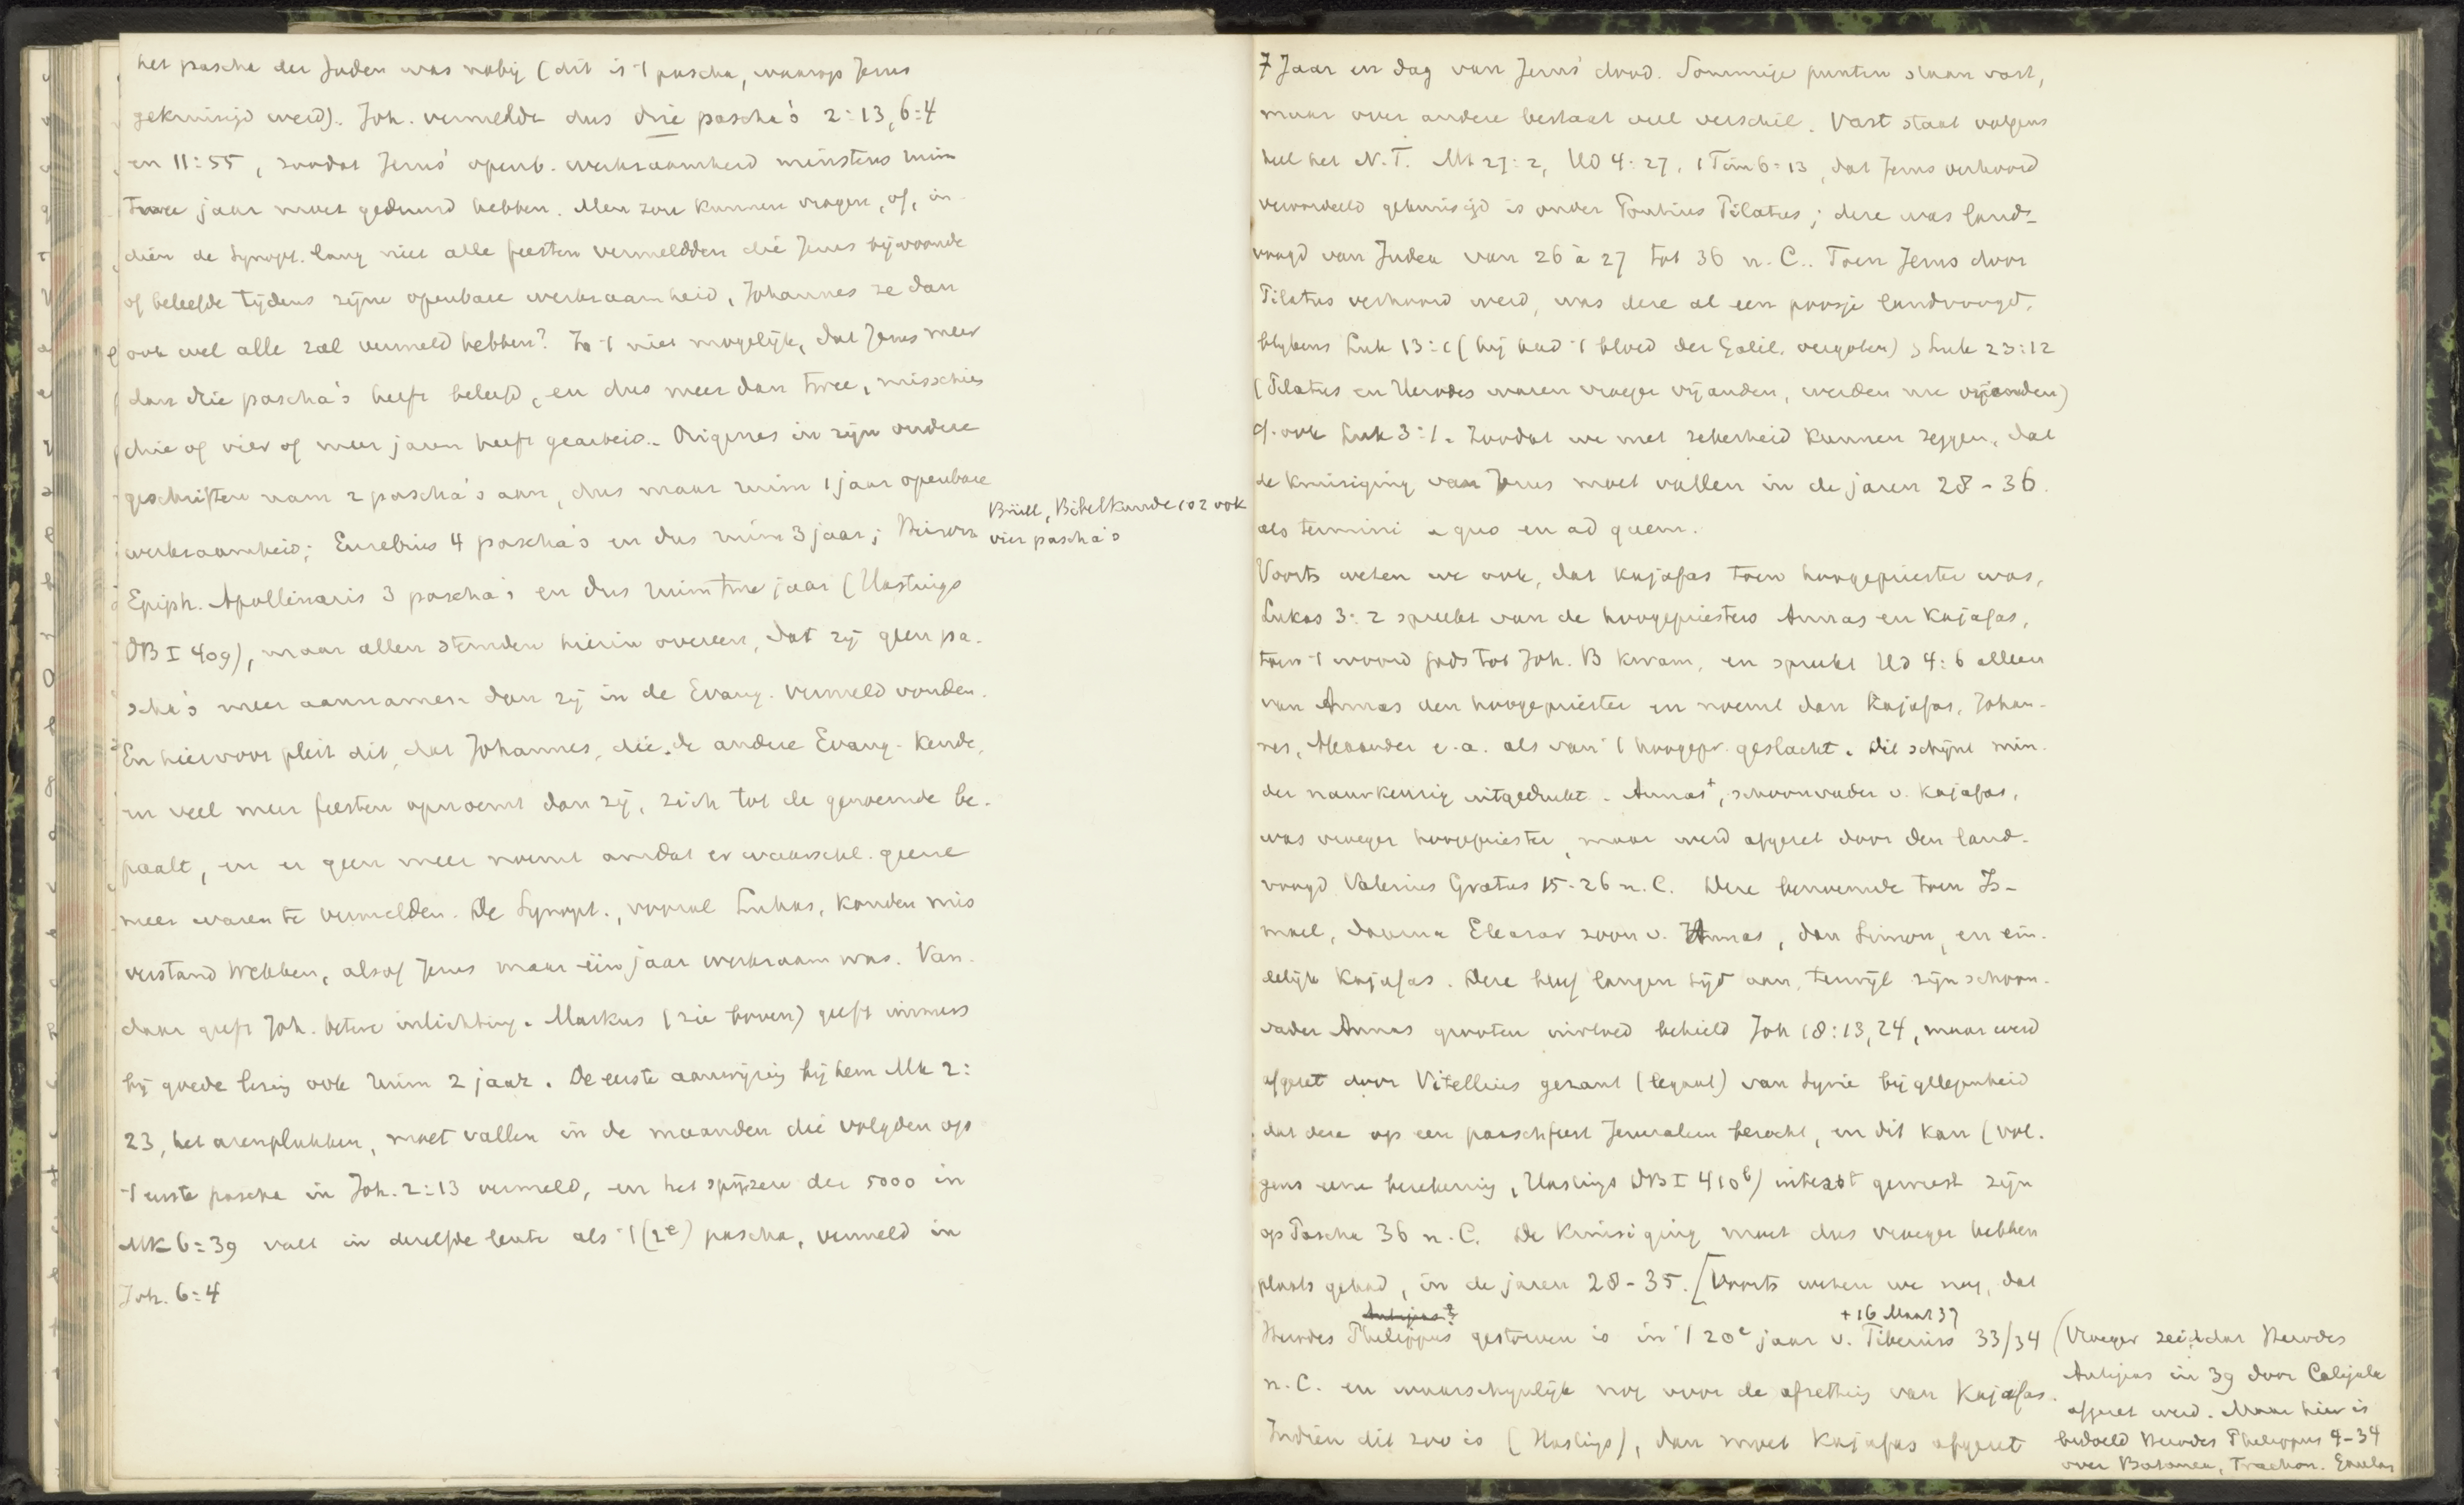 het pascha der Joden was nabij (dit is 't pascha, waarop Jezus
gekruisigd werd). Joh. vermeldde dus drie pascha's 2:13, 6:4
en 11:55, zoodat Jezus' openb. werkzaamheid minstens ruim
twee jaar moet geduurd hebben. Men zou kunnen vragen, of, in-
dien de Synopt. lang niet alle feesten vermeldden die Jezus bijwoonde
of beleefde tijdens zijne openbare werkzaamheid, Johannes ze dan
ook wel alle zal vermeld hebben? Is 't niet mogelijk, dat Jezus meer
dan drie pascha's heeft beleefd, en dus meer dan twee, misschien
drie of vier of meer jaren heeft gearbeid. Origenes in zijn oudere
geschriften nam 2 pascha's aan, dus maar ruim 1 jaar openbare
werkzaamheid; Eusebius 4 pascha's en dus ruim 3 jaar;
Brüll, Bibelkunde 102 ook
vier pascha's
Epiph. Apollinaris 3 pascha's en dus ruim twee jaar (Hastings
DB I 409), maar allen stemden hierin overeen, dat zij geen pa-
scha's meer aannamen dan zij in de Evang. vermeld vonden.
En hiervoor pleit dit, dat Johannes, die de andere Evang. kende,
en veel meer feesten opnoemt dan zij, zich tot de genoemde be-
paalt, en er geen meer noemt omdat er waarschl. geene
meer waren te vermelden. De Synopt., vooral Lukas, konden mis
verstand wekken, alsof Jezus maar één jaar werkzaam was. Van-
daar geeft Joh. betere inlichting. Markus (zie boven) geeft immers
bij goede lezing ook ruim 2 jaar. De eerste aanwijzing bij hem Mk 2:
23, het arenplukken, moet vallen in de maanden die volgden op
't eerste pascha in Joh. 2:13 vermeld, en het spijzen der 5000 in
Mk 6:39 valt in dezelfde lente als 't (2e) pascha, vermeld in
Joh. 6:4
7 Jaar en dag van Jezus' dood. Sommige punten staan vast,
maar over andere bestaat veel verschil. Vast staat volgens
heel het N.T. Mt 27:2, Hd 4:27, 1 Tim 6:13, dat Jezus verhoord
veroordeeld gekruisigd is onder Pontius Pilatus; deze was land-
voogd van Judea van 26 à 27 tot 36 n.C.. Toen Jezus door
Pilatus verhoord werd, was deze al een poosje landvoogd,
blijkens Luk 13:1 (hij had 't bloed der Galil. vergoten), Luk 23:12
(Pilatus en Herodes waren vroeger vijanden, werden nu vrienden)
cf. ook Luk 3:1. Zoodat we met zekerheid kunnen zeggen, dat
de kruisiging van Jezus moet vallen in de jaren 28-36
als termini a quo en ad quem.
Voorts weten we ook, dat Kajafas toen hoogepriester was,
Lukas 3:2 spreekt van de hoogepriesters Annas en Kajafas,
toen 't woord Gods tot Joh. B kwam, en spreekt Hd 4:6 alleen
van Annas den hoogepriester en noemt dan Kajafas, Johan-
nes, Alexander e.a. als van 't hoogepr. geslacht. Dit schijnt min-
der nauwkeurig uitgedrukt. Annas+, schoonvader v. Kajafas,
was vroeger hoogepriester, maar werd afgezet door den land-
voogd Valerius Gratus 15-26 n.C. Deze benoemde toen Is-
mael, daarna Eleazar zoon v. Annas, dan Simon, en ein-
delijk Kajafas. Deze bleef langen tijd aan, terwijl zijn schoon-
vader Annas grooten invloed behield Joh 18:13,24, maar werd
afgezet door Vitellius gezant (legaat) van Syrie bij gelegenheid
dat deze op een paaschfeest Jeruzalem bezocht, en dit kan (vol-
gens eene berekening, Hastings DB I 410b) uiterst geweest zijn
op Pascha 36 n.C. De kruisiging moet dus vroeger hebben
plaats gehad, in de jaren 28-35. [Voorts weten we nog, dat
+16 Maart 37
Herodes Philippus gestorven is in 't 20e jaar v. Tiberius 33/34
n.C. en waarschijnlijk nog voor de afzetting van Kajafas.
Indien dit zoo is (Hastings), dan moet Kajafas afgezet
(Vroeger zei ik dat Herodes
Antipas in 39 door Caligula
afgezet werd. Maar hier is
bedoeld Herodes Philippus 4-34
over Batanea, Trachon.